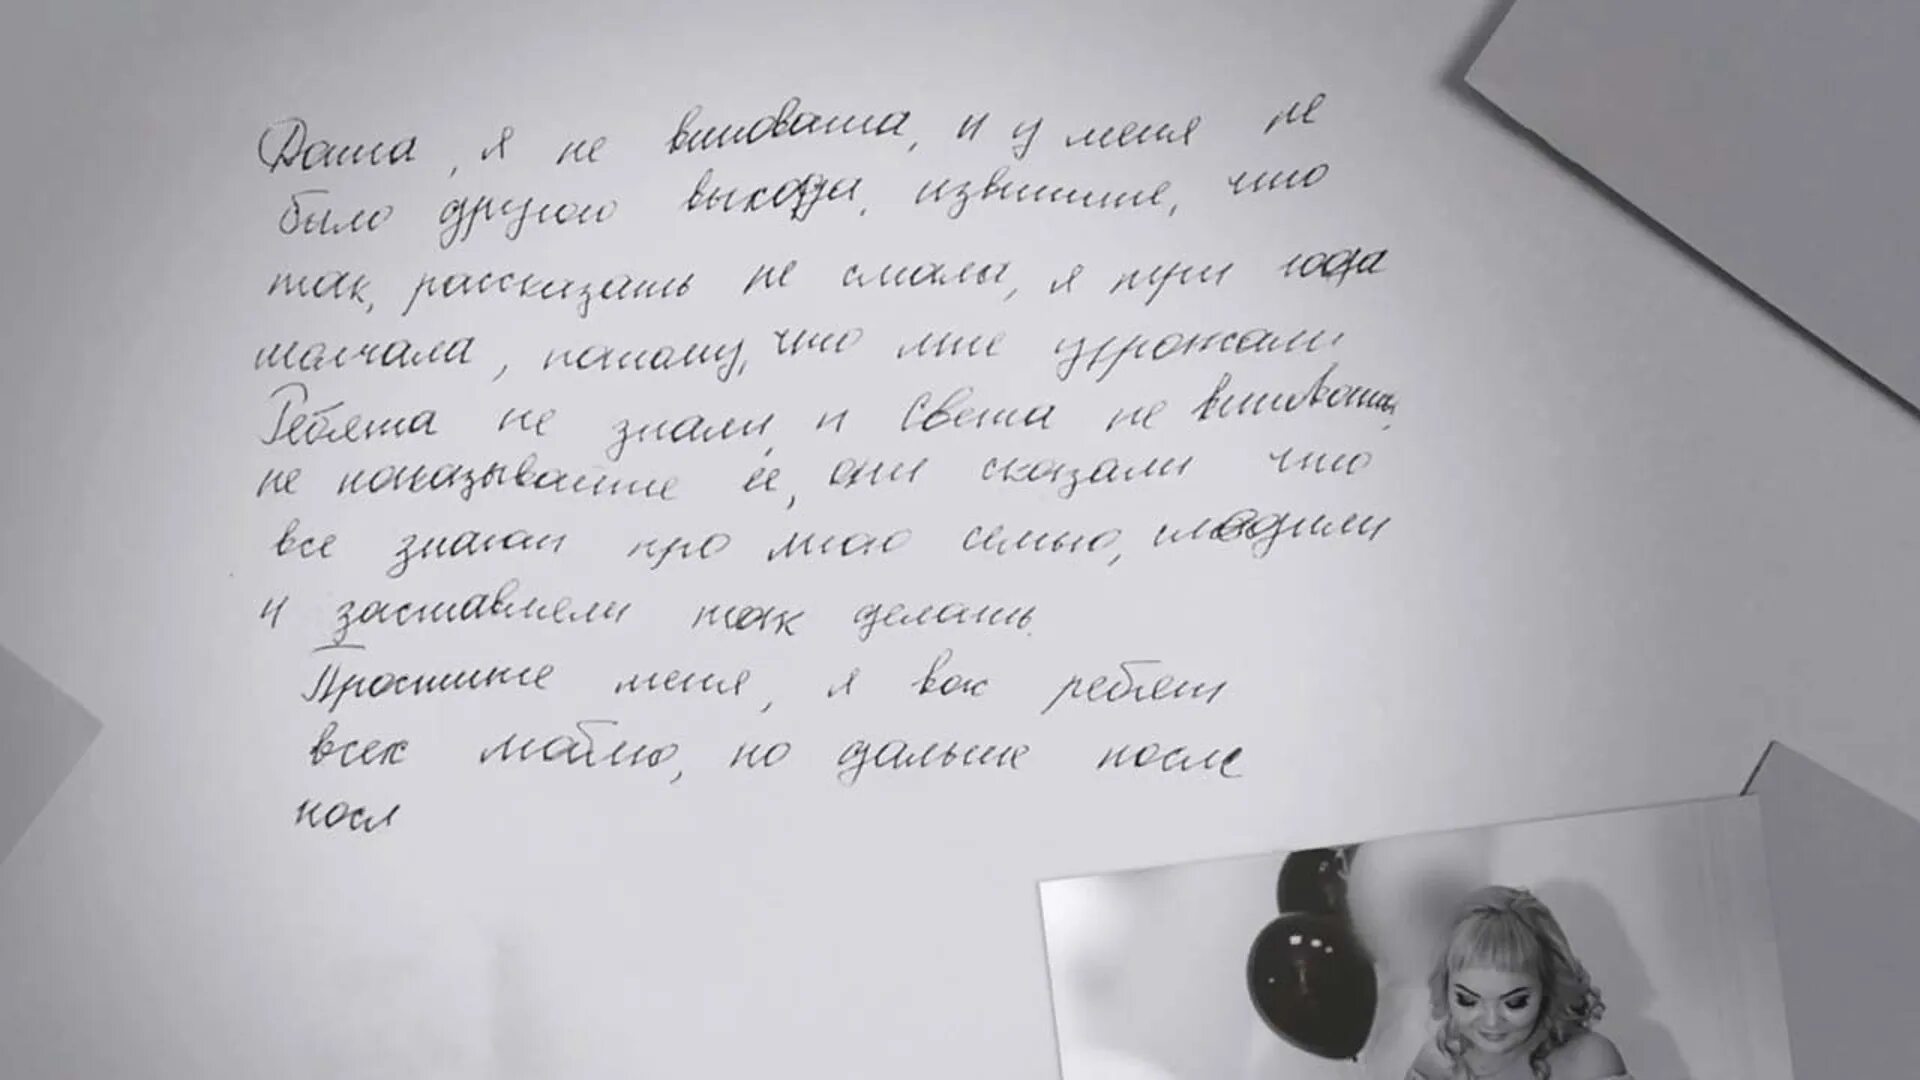 Даша, я не виновата, и у меня не
было другого выхода, извините, что
так, рассказать не смогла, я три года
молчала, потому, что мне угрожали
Ребята не знали, и Света не виновата,
не наказывайте ее, они сказали что
все знают про мою семью, следили
и заставляли так делать.
Простите меня, я вас ребят
всех люблю, но дальше после
посл